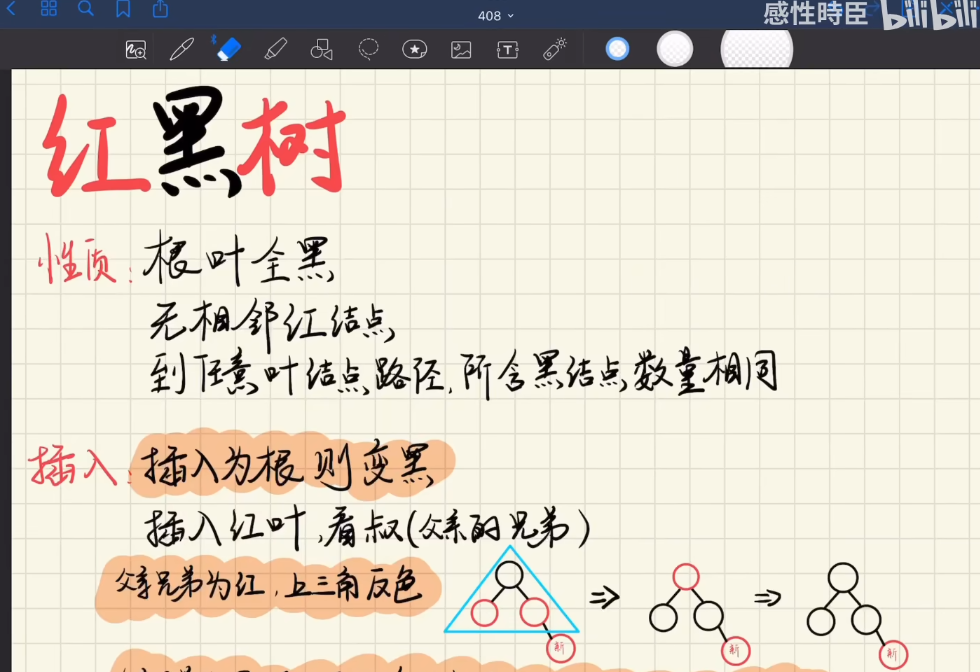 408
感性時臣 bilibili
红黑树
性质: 根叶全黑
无相邻红结点
到任意叶结点路径,所含黑结点数量相同
插入: 插入为根则变黑
插入红叶,看叔(父亲的兄弟)
父亲兄弟为红,上三角反色
新
新
新